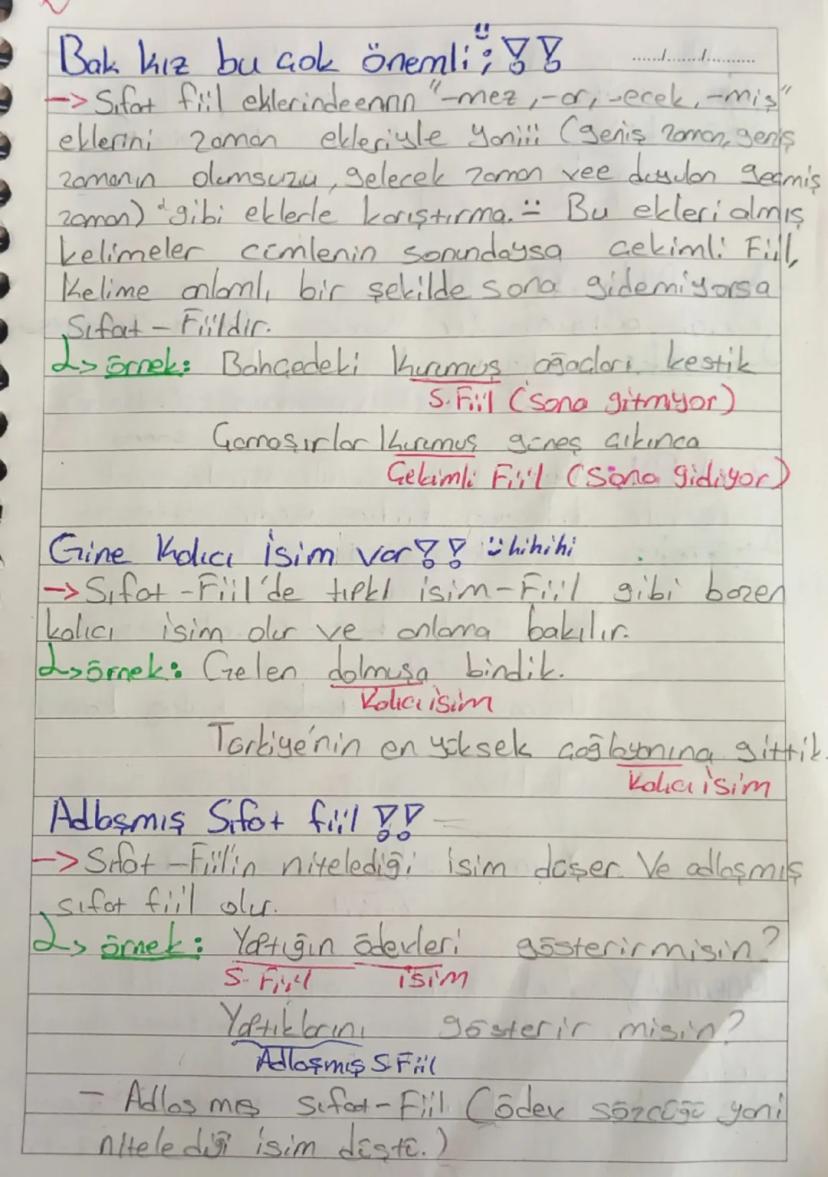 Bak kız bu çok önemli; !! ...../...../..........
→ Sıfat fiil eklerindeennn "-mez, -or, -ecek, -miş"
eklerini zaman ekleriyle yaniii (geniş zaman, geniş
zamanın olumsuzu, gelecek zaman vee duyulan geçmiş
zaman) gibi eklerle karıştırma. Bu ekleri almış
kelimeler cümlenin sonundaysa çekimli Fiil,
Kelime anlamlı bir şekilde sona gidemiyorsa
Sıfat-Fiildir.
↳ örnek: Bahçedeki kurumuş ağaçları kestik
S. Fiil (sona gitmiyor)
Çamaşırlar kurumuş güneş çıkınca
Çekimli Fiil (Sona gidiyor)
Gine Kalıcı İsim var!! hihihi
→ Sıfat-Fiil'de tıpkı isim-Fiil gibi bazen
kalıcı isim olur ve anlama bakılır.
↳ örnek: Gelen dolmuşa bindik.
Kalıcı isim
Türkiye'nin en yüksek çağlayanına gittik.
Kalıcı isim
Adlaşmış Sıfat fiil !!
→ Sıfat-Fiil'in nitelediği isim düşer. Ve adlaşmış
sıfat fiil olur.
↳ örnek: Yaptığın ödevleri gösterirmisin?
S-Fiil isim
Yaptıklarını gösterir misin?
Adlaşmış S.Fiil
- Adlaşmış Sıfat-Fiil (ödev sözcüğü yani
nitelediği isim düştü.)